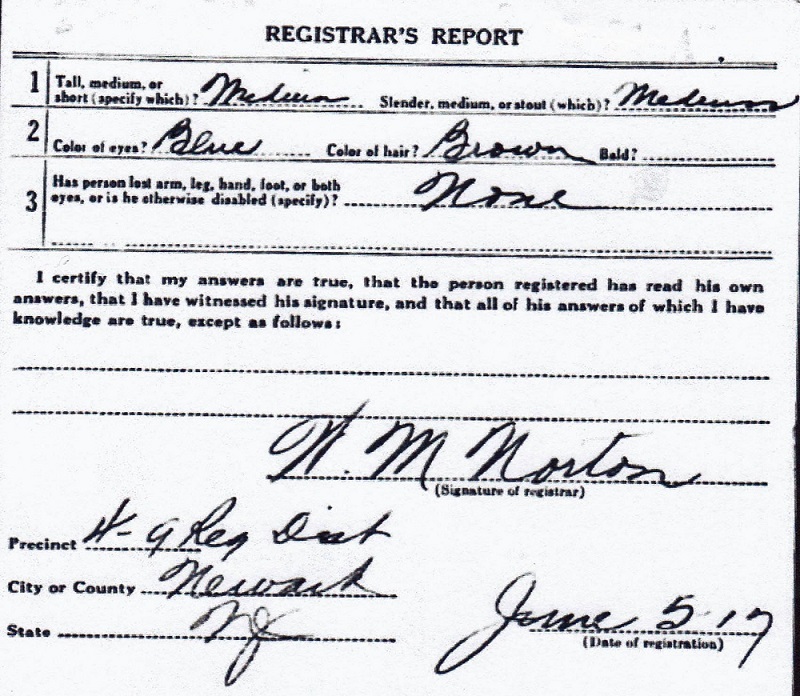 REGISTRAR'S REPORT
1 Tall, medium, or
short (specify which)? Medium Slender, medium, or stout (which)? Medium
2 Color of eyes? Blue Color of hair? Brown Bald?
3 Has person lost arm, leg, hand, foot, or both
eyes, or is he otherwise disabled (specify)? None
I certify that my answers are true, that the person registered has read his own
answers, that I have witnessed his signature, and that all of his answers of which I have
knowledge are true, except as follows:
W. M Norton
(Signature of registrar)
Precinct 4-9 Reg Dist
City or County Newark
State NJ
June 5-17
(Date of registration)